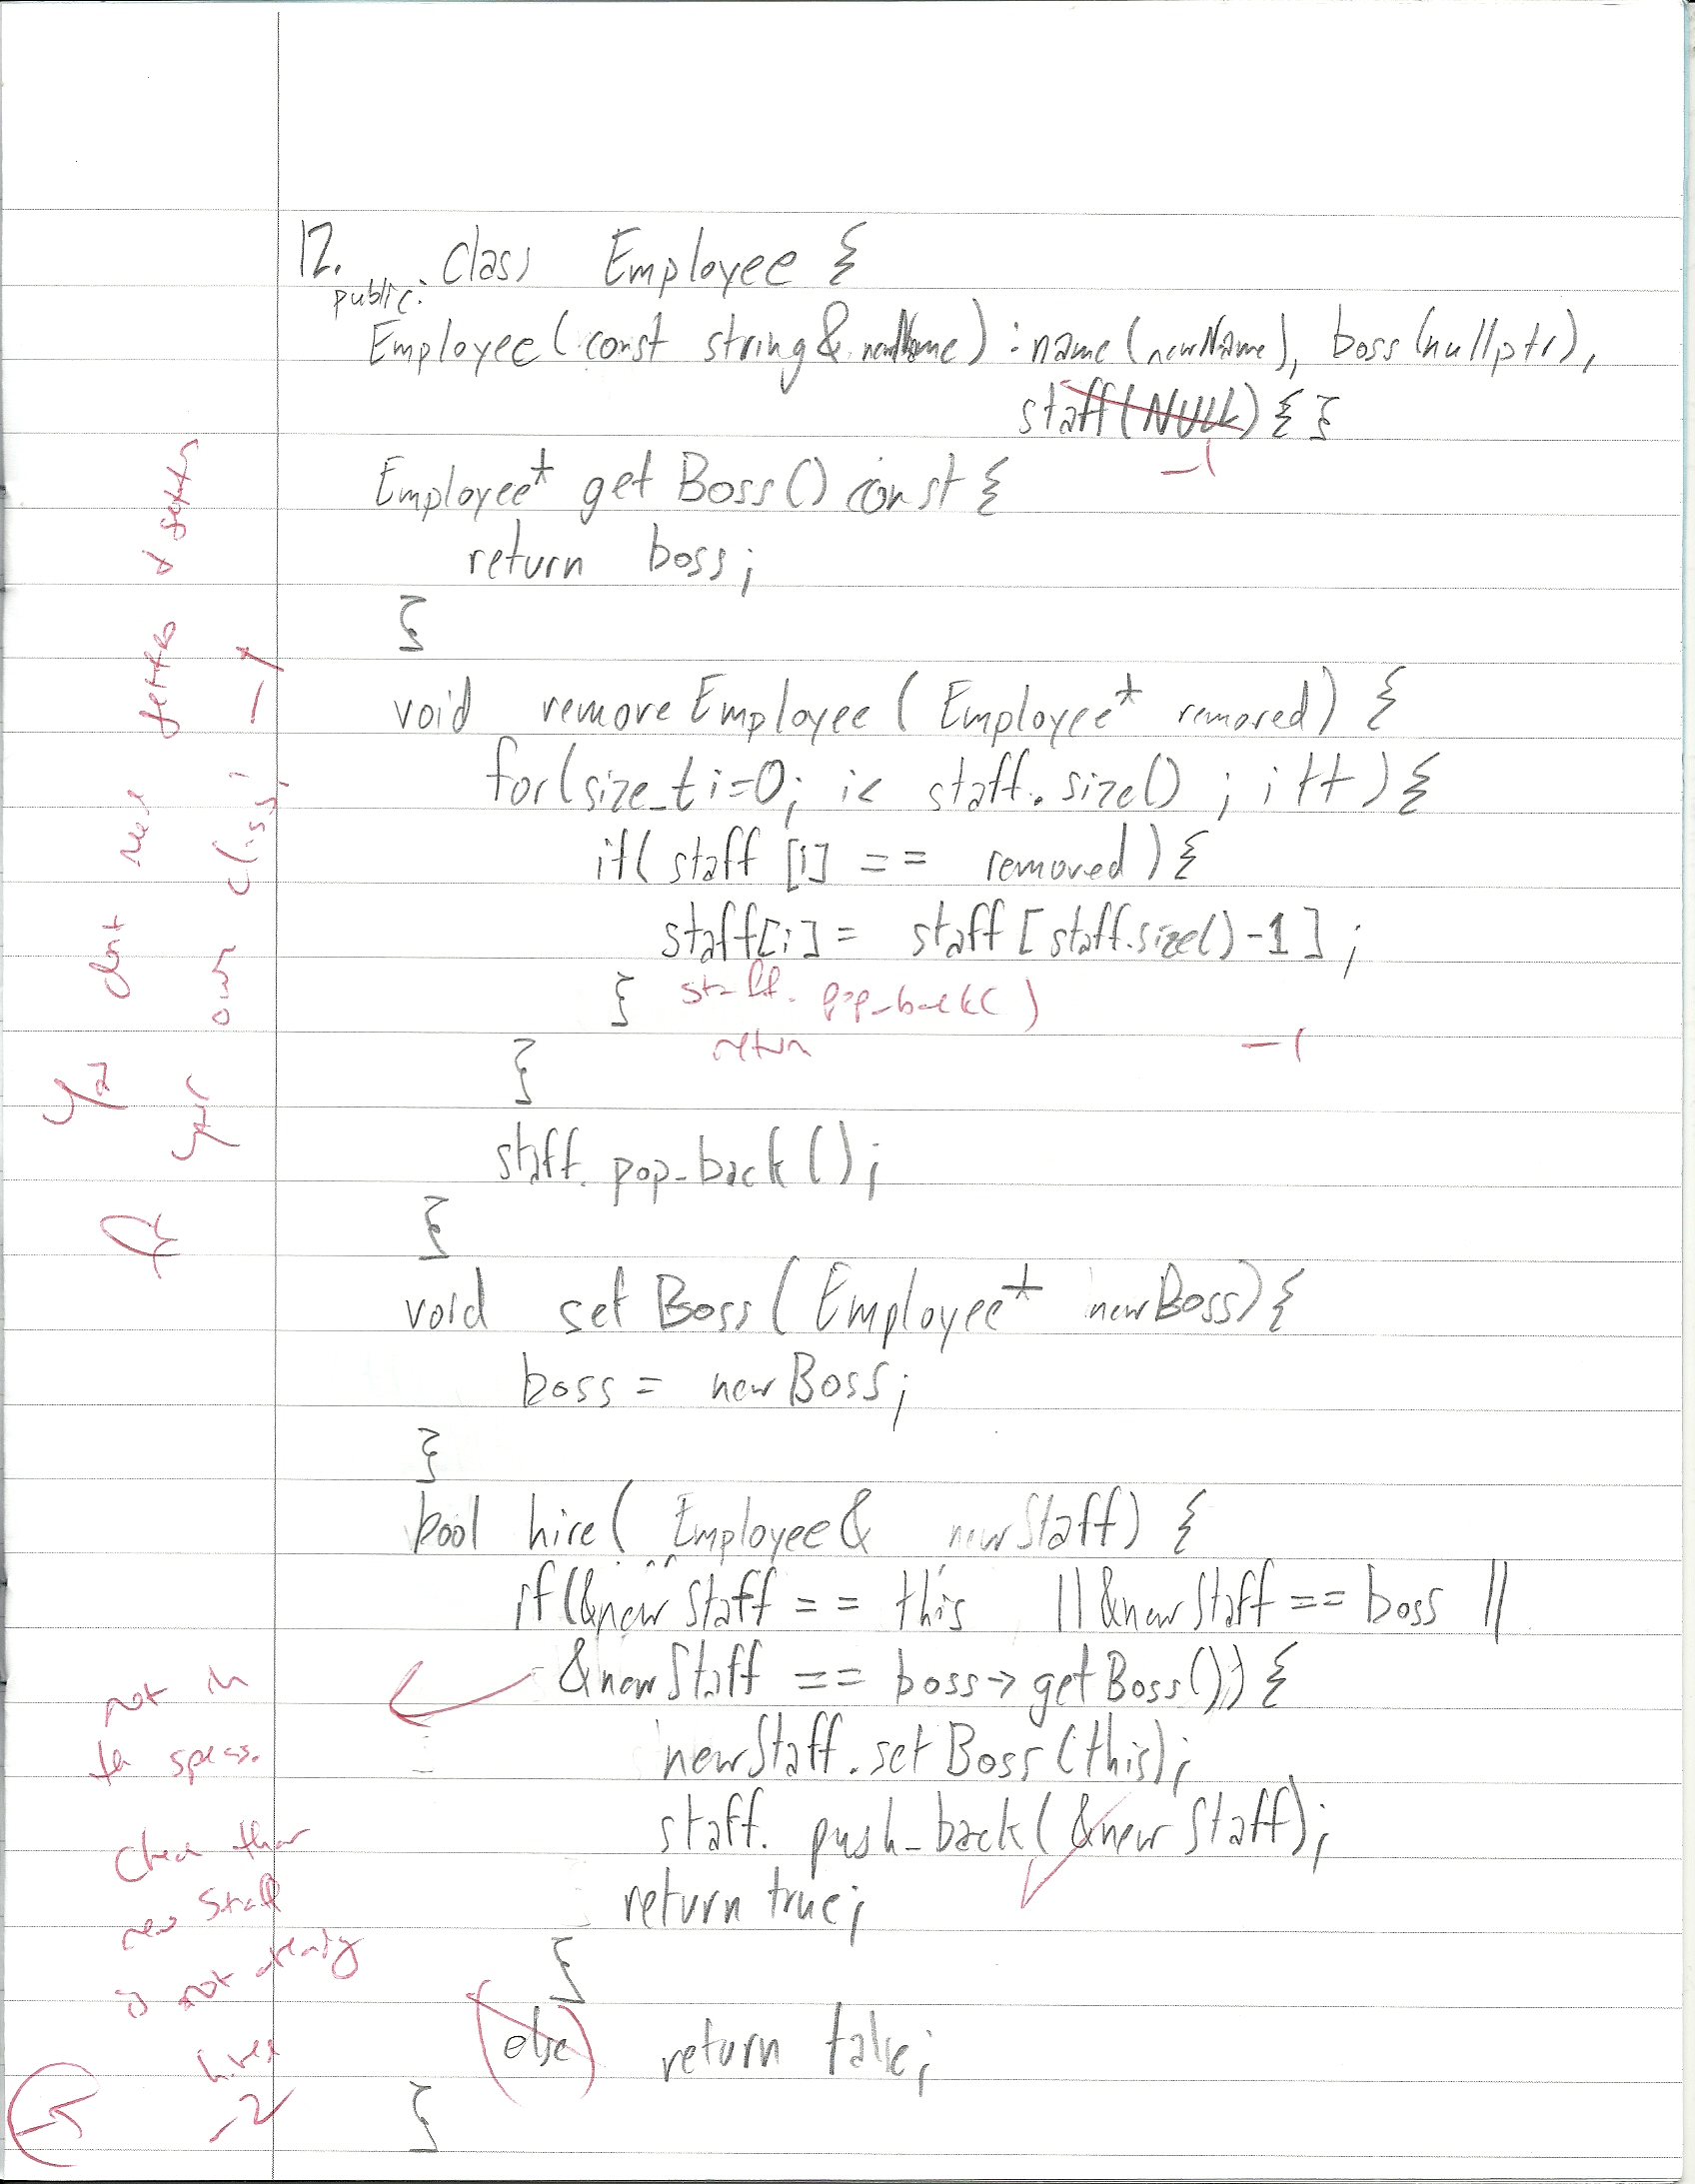 12. class Employee {
public:
Employee(const string& newName) : name(newName), boss(nullptr),
staff(NULL) { }
-1
Employee* getBoss() const {
return boss;
}
void removeEmployee(Employee* removed) {
for(size_t i=0; i< staff.size() ; i++){
if( staff [i] == removed ){
staff[i] = staff [staff.size()-1] ;
} staff. pop_back( )
return -1
}
staff. pop_back();
}
void setBoss(Employee* newBoss){
boss = newBoss;
}
bool hire( Employee& newStaff) {
if(&newStaff == this || &newStaff == boss ||
&newStaff == boss->getBoss()) {
newStaff.setBoss(this);
staff. push_back( &newStaff);
return true;
}
else return false;
}
* You don't need getters & setters
in your own class! -1
not in
the specs.
Check that
new Staff
is not already
hired
-2
-5